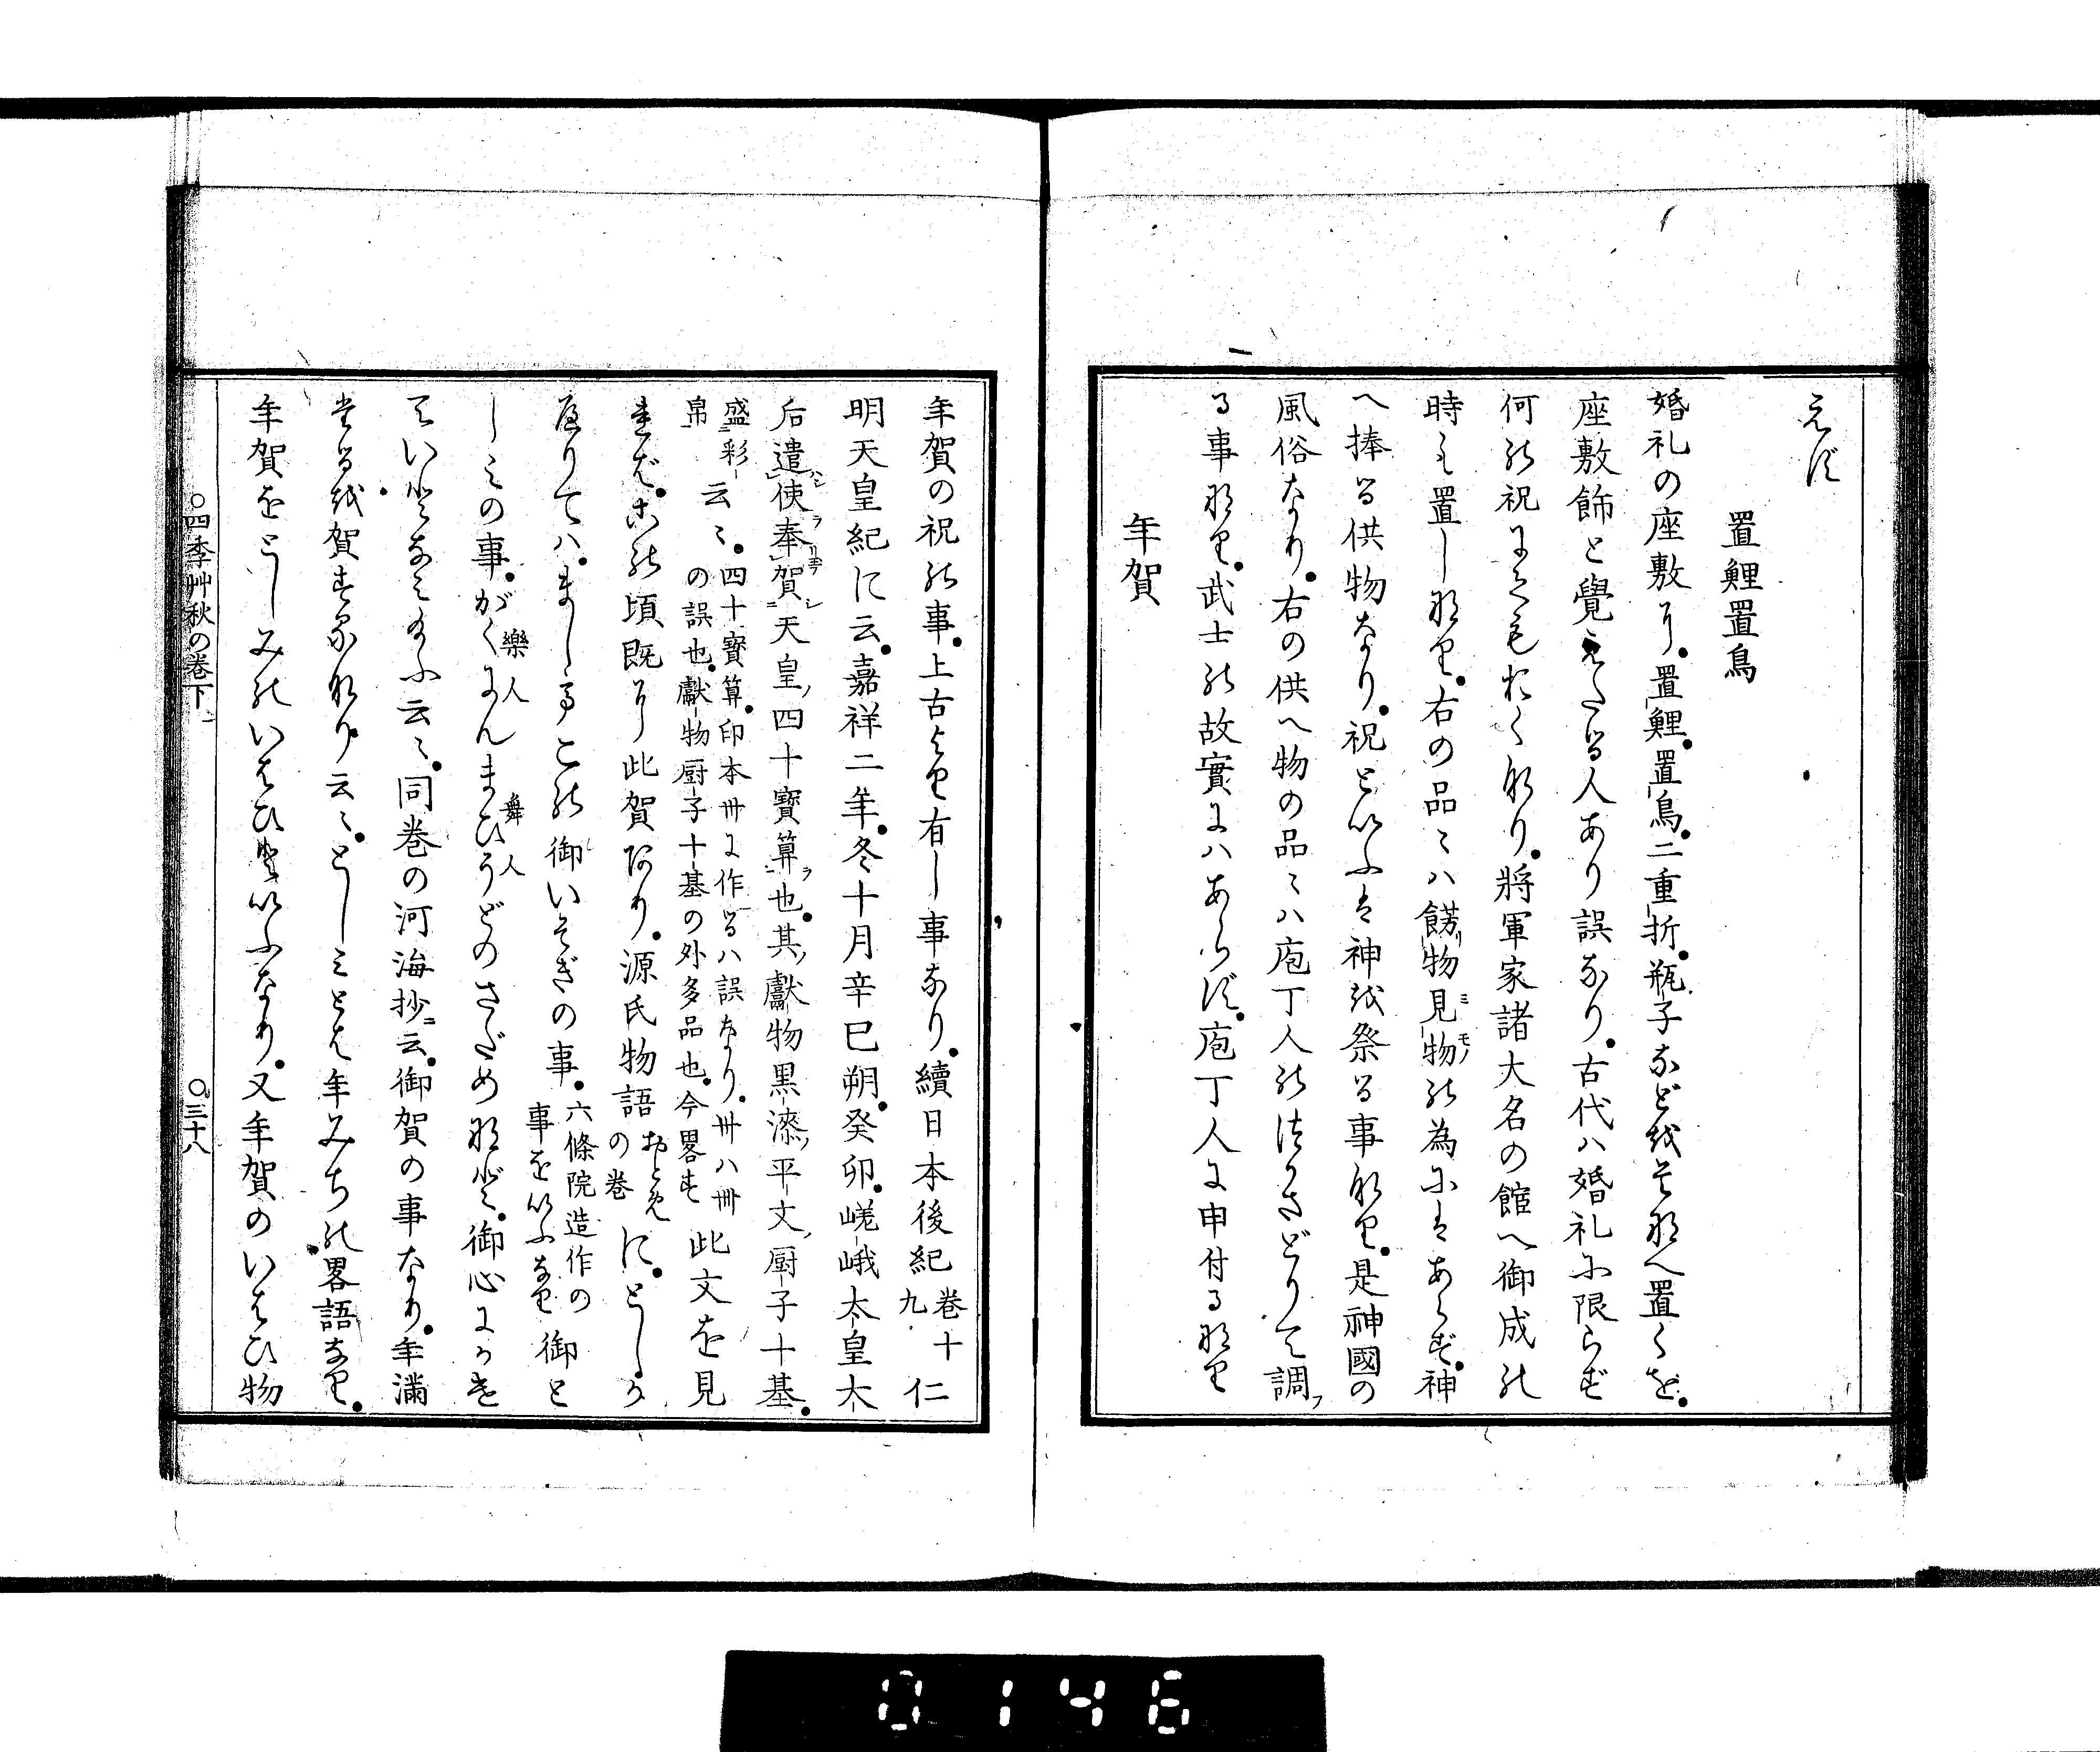 えず
置鯉置鳥
婚礼の座敷に置鯉置鳥二重折瓶子などをそなへ置くを
座敷飾と覺えたる人あり誤なり古代ハ婚礼に限らず
何の祝にてもおくなり將軍家諸大名の館へ御成の
時も置しなり右の品〻ハ餝物見物の為にはあらず神
へ捧る供物なり祝といふは神を祭る事なり是神國の
風俗なり右の供へ物の品〻ハ庖丁人のつかさどりて調フ
る事なり武士の故實にハあらず庖丁人に申付るなり
年賀
年賀の祝の事上古より有し事なり續日本後紀巻十九仁
明天皇紀に云嘉祥二年冬十月辛巳朔癸卯嵯峨太皇太
后遣使奉賀天皇四十寶算也其獻物黒漆平文厨子十基
盛彩帛云〻四十寶算印本卅に作るハ誤なり卅ハ卌の誤也獻物厨子十基の外多品也今畧す此文を見
ればこの頃既に此賀あり源氏物語おとめの巻にとしか
へりてハましてこの御いそぎの事六條院造作の事をいふなり御と
しみの事がくにんまひうどのさだめなど御心にかけ
ていとなみ給ふ云〻同巻の河海抄云御賀の事なり年滿
たるを賀する也云〻としみとは年みちの畧語なり
年賀をとしみのいはひ共いふなり又年賀のいはひ物
○四季艸秋の巻下
○三十八
0146